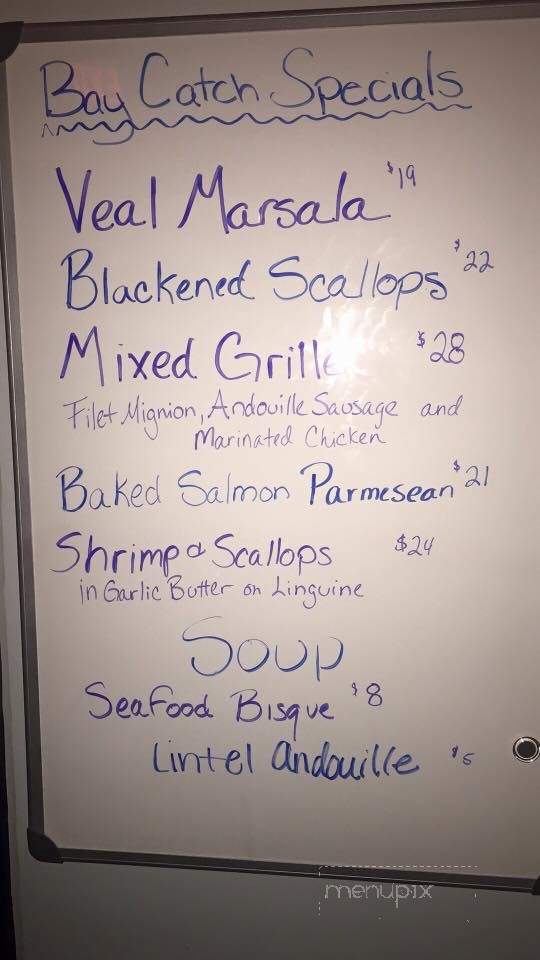 Bay Catch Specials
Veal Marsala $19
Blackened Scallops $22
Mixed Grille $28
Filet Mignion, Andouille Sausage and
Marinated Chicken
Baked Salmon Parmesean $21
Shrimp & Scallops $24
in Garlic Butter on Linguine
Soup
Seafood Bisque $8
Lintel Andouille $5
menupix